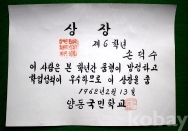 상장
제6학년
손덕수
이 사람은 본 학년간 품행이 방정하고
학업성적이 우수하므로 이 상장을 줌
1962년 2월 13일
안동국민학교
kobay